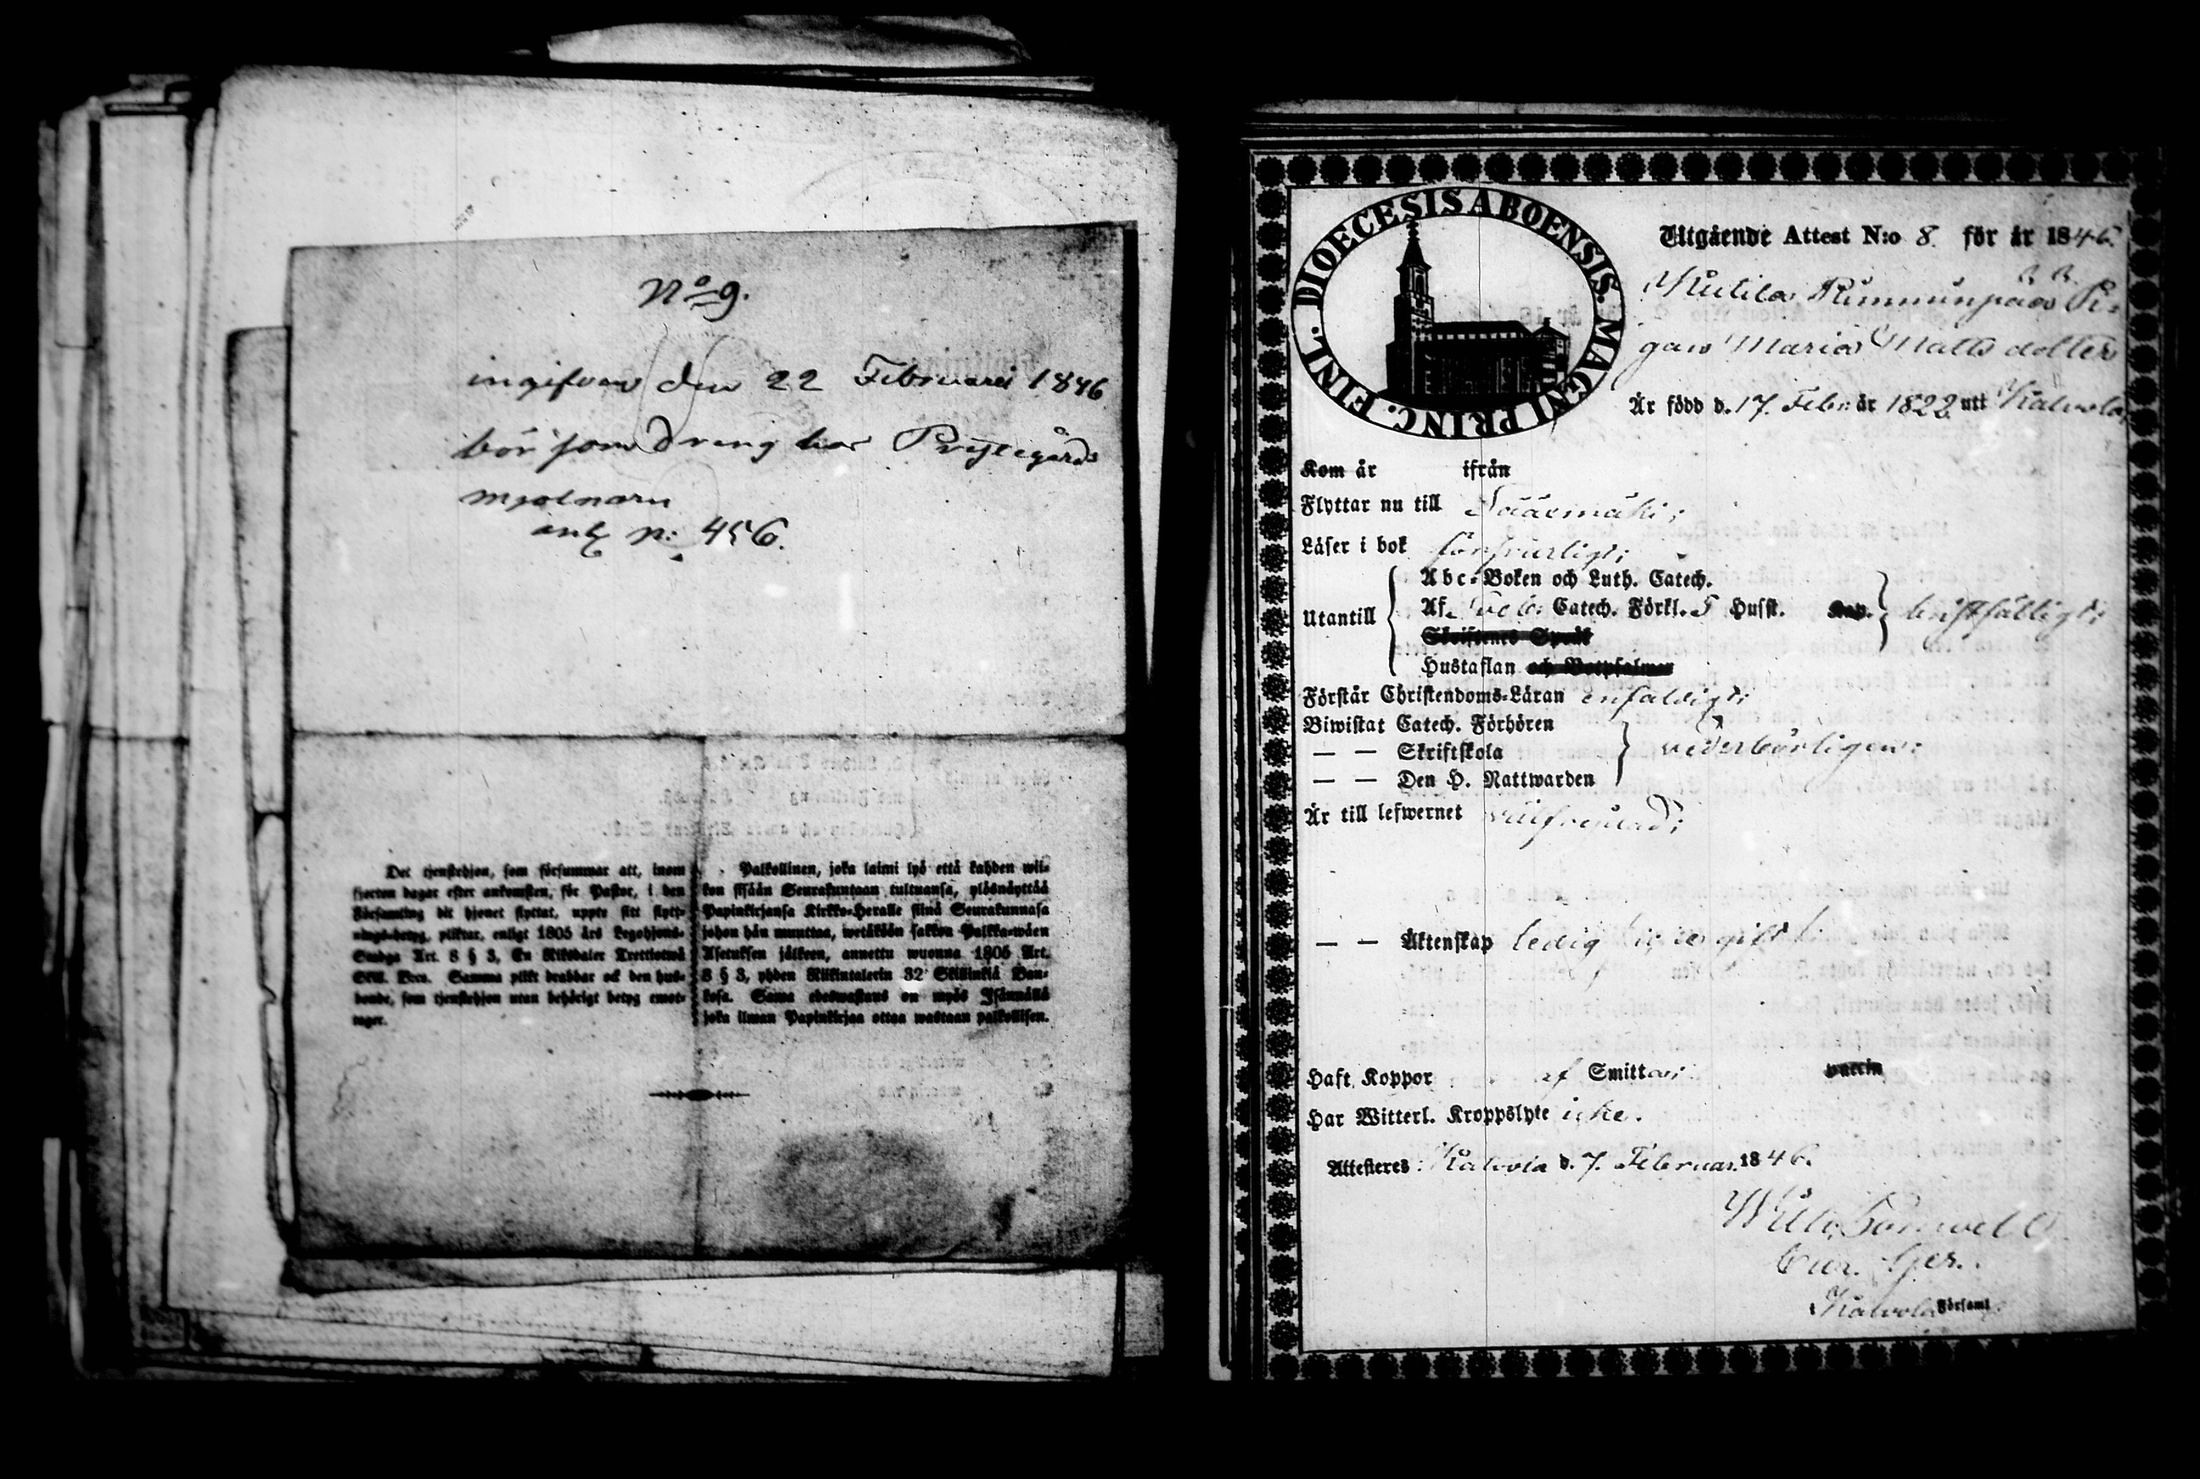 No 9.
ingifven den 22 Februari 1846
bör som dreng hos Prästegårds
mjolnarn
ant n: 456.
Det tjenstehjon, som försummar att, inom
fjorton dagar efter ankomsten, för Pastor, i den
Församling dit hjonet flyttat, uppte sitt flytt-
nings-betyg, pliktar, enligt 1805 års Legohjons-
Stadga Art. 8 § 3, En Riksdaler Trettiotwå
Skill. Bco. Samma plikt drabbar ock den hus-
bonde, som tjenstehjon utan behörigt betyg emot-
tager.
Palkollinen, joka laimi lyö että kahden wii-
kon sisään Seurakuntaan tultuansa, ylösnäyttää
Papinkirjansa Kirkko-Heralle siinä Seurakunnasa
johon hän muuttaa, wetäköön sakkoa Palkka-wäen
Asetuksen jälkeen, annettu wuonna 1805 Art.
8 § 3, yhden Riikintalerin 32 Skillinkiä Ban-
kosa. Sama edeswastaus on myös Isännällä
joka ilman Papinkirjaa ottaa wastaan palkollisen.
DIOECESIS ABOENSIS. MAGNI PRINC. FINL.
Utgående Attest N:o 8. för år 1846.
Pi-
gan Maria Matts dotter
Är född d. 17. Febr: år 1822 utt Kalvola,
Kom år ifrån
Flyttar nu till Sääxmäki;
Läser i bok försvarligt;
Abc-Boken och Luth. Catech.
Utantill Af Catech. Förkl. 5 Husst. Kap.
Skriftenes Språk
Hustaflan och Botpsalmer
Förstår Christendoms-Läran enfaldigt;
Biwistat Catech. Förhören
— — Skriftskola vederbörligen;
— — Den H. Nattwarden
Är till lefwernet välfrejdad;
— — Äktenskap ledig
Haft Koppor af Smittan; vaccin
Har Witterl. Kroppslyte icke.
Attesteras: Kalvola d. 7. Februar. 1846.
Kalvola Församl.